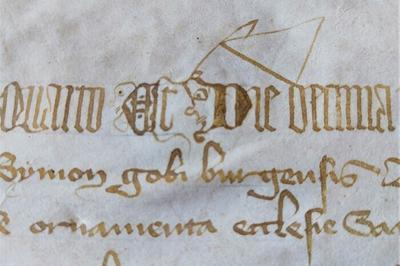 Quarto Et Die decima
Symon gobi burgensis
ornamenta ecclesie